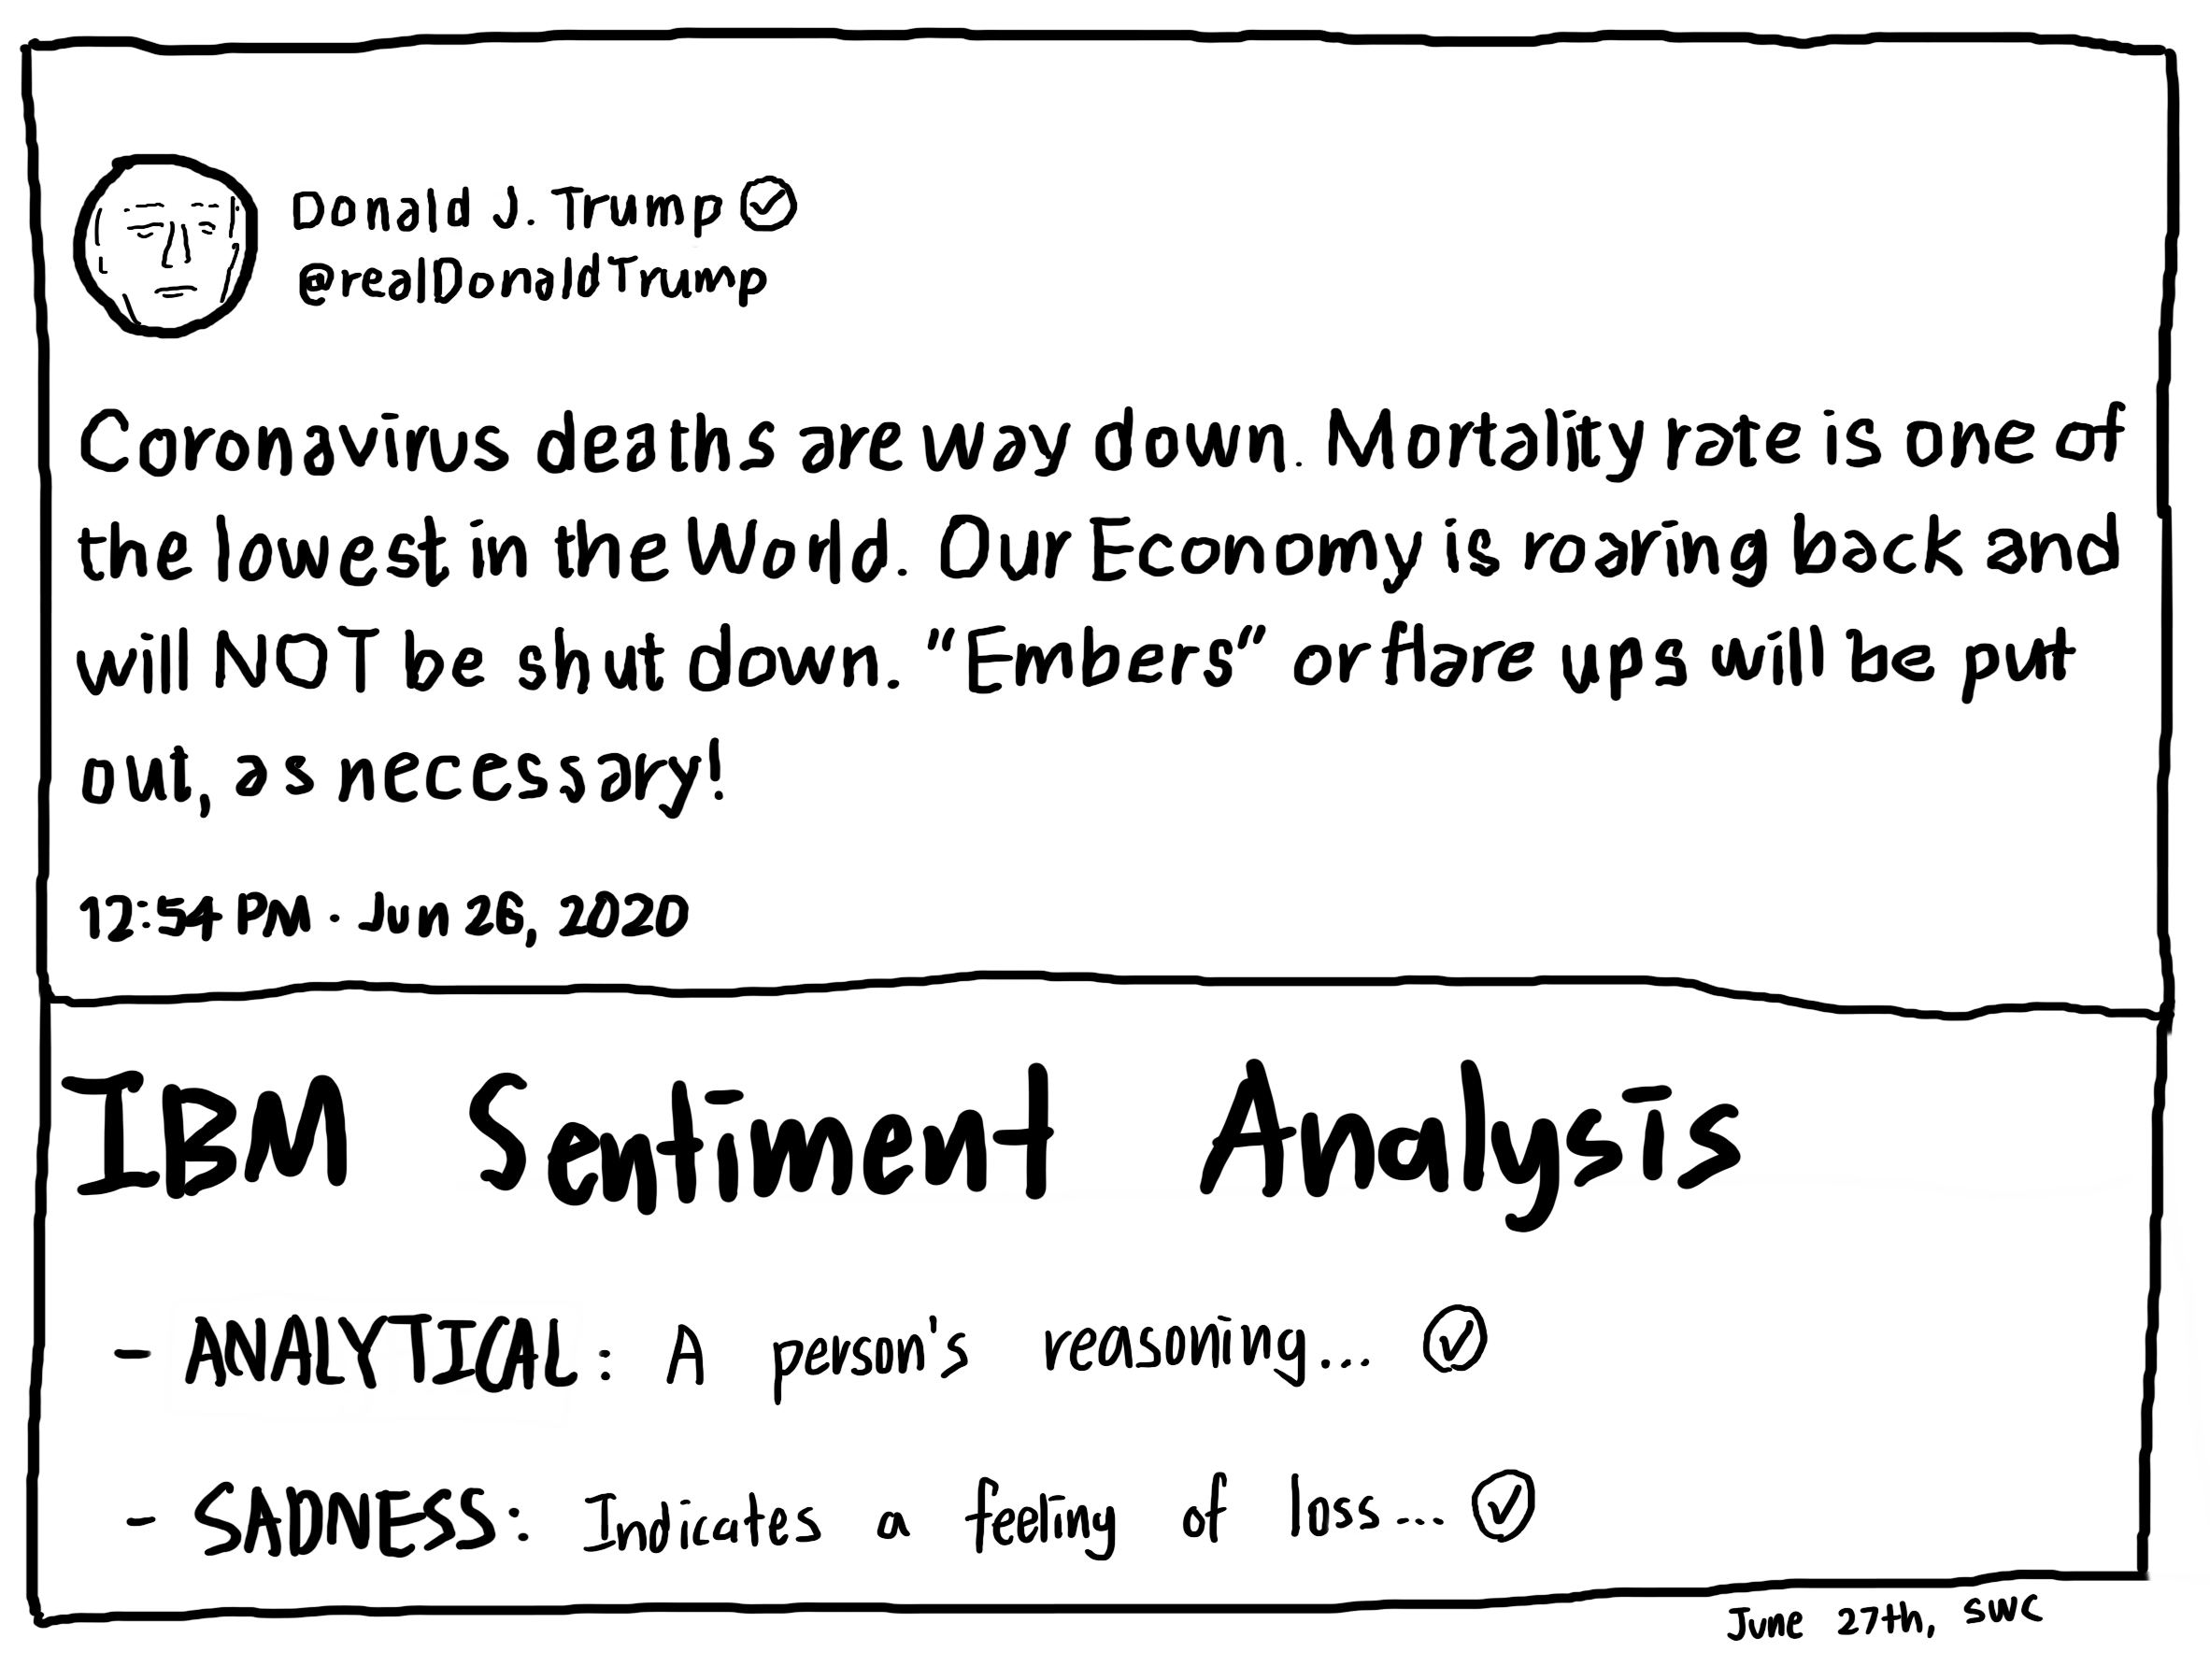 Donald J. Trump
@realDonaldTrump
Coronavirus deaths are way down. Mortality rate is one of
the lowest in the World. Our Economy is roaring back and
will NOT be shut down. "Embers" or flare ups will be put
out, as necessary!
12:54 PM · Jun 26, 2020
IBM Sentiment Analysis
- ANALYTICAL: A person's reasoning...
- SADNESS: Indicates a feeling of loss...
June 27th, SWC